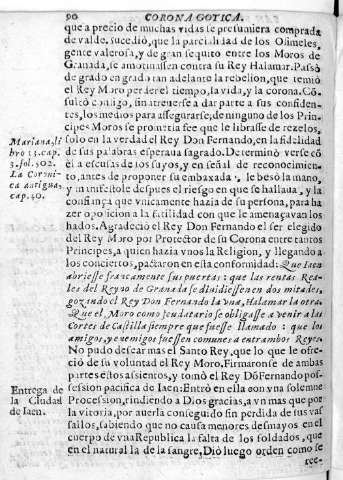 90 CORONA GOTICA.
que a precio de muchas vidas se presumiera comprada
de valde. sucediò, que la parcialidad de los Osimeles,
gente valerosa, y de gran sequito entre los Moros de
Granada, se amotinassen contra su Rey Halamar. Passò
de grado en grado tan adelante la rebelion, que temiò
el Rey Moro perder el tiempo, la vida, y la corona. Cõ-
sultò consigo, sin atreuerse a dar parte a sus confiden-
tes, los medios para assegurarse; de ninguno de los Prin-
cipes Moros se prometia fee que le librasse de rezelos,
solo en la verdad del Rey Don Fernando, en la fidelidad
de sus palabras espéraua sagrado. Determinò verse cõ
èl a escusas de los suyos, y en señal de reconocimien-
to, antes de proponer su embaxada, le besò la mano,
y manifestole despues el riesgo en que se hallaua, y la
confiança que vnicamente hazia de su persona, para ha-
zer oposicion a la fatilidad con que le amenaçavan los
hados. Agradeciò el Rey Don Fernando el ser elegido
del Rey Moro por Protector de su Corona entre tantos
Principes, a quien hazia vnos la Religion, y llegando a
los conciertos, pactaron en esta conformidad: Que Iaen
abriesse francamente sus puertas: que las rentas Rea-
les del Reyno de Granada se diuidiessen en dos mitades,
gozando el Rey Don Fernando la vna, Halamar la otra.
Que el Moro como feudatario se obligasse a venir a las
Cortes de Castilla siempre que fuesse llamado: que los
amigos, y enemigos fuessen comunes a entrambos Reyes.
No pudo desear mas el Santo Rey, que lo que le ofre-
ciò de su voluntad el Rey Moro. Firmaronse de ambas
partes estos assientos, y tomò el Rey Dõ Fernando pos-
session pacifica de Iaen: Entrò en ella con vna solemne
Procession, rindiendo a Dios gracias, aun mas que por
la vitoria, por auerla conseguido sin perdida de sus vas-
sallos, sabiendo que no causa menores desmayos en el
cuerpo de vna Republica la falta de los soldados, que
en el natural la de la sangre. Diò luego orden como se
ree-
Mariana, li-
bro 13. cap.
3. fol. 502.
La Coroni-
ca antigua,
cap. 30.
Entrega de
la Ciudad
de Iaen.